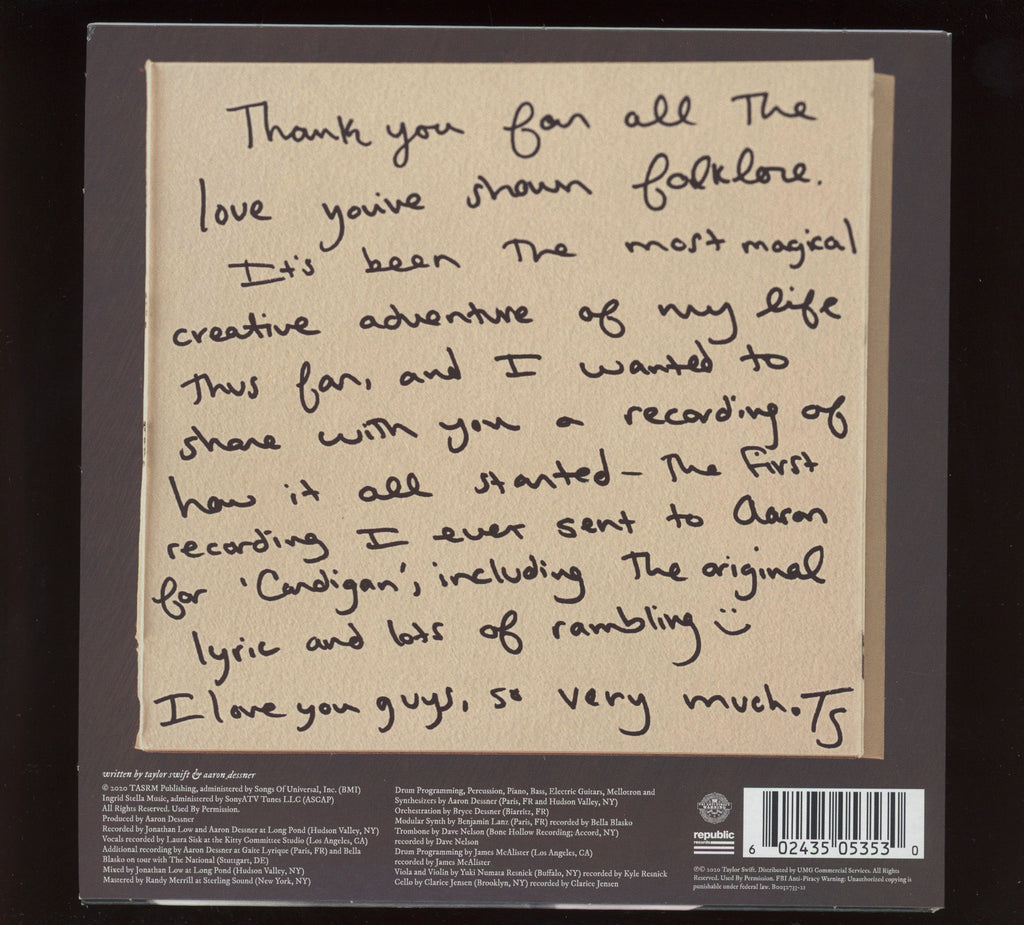 Thank you for all the
love you've shown folklore.
It's been the most magical
creative adventure of my life
thus far, and I wanted to
share with you a recording of
how it all started - the first
recording I ever sent to Aaron
for 'Cardigan', including the original
lyric and lots of rambling :)
I love you guys, so very much. TS
written by taylor swift & aaron dessner
© 2020 TASRM Publishing, administered by Songs Of Universal, Inc. (BMI)
Ingrid Stella Music, administered by SonyATV Tunes LLC (ASCAP)
All Rights Reserved. Used By Permission.
Produced by Aaron Dessner
Recorded by Jonathan Low and Aaron Dessner at Long Pond (Hudson Valley, NY)
Vocals recorded by Laura Sisk at the Kitty Committee Studio (Los Angeles, CA)
Additional recording by Aaron Dessner at Gaite Lyrique (Paris, FR) and Bella
Blasko on tour with The National (Stuttgart, DE)
Mixed by Jonathan Low at Long Pond (Hudson Valley, NY)
Mastered by Randy Merrill at Sterling Sound (New York, NY)
Drum Programming, Percussion, Piano, Bass, Electric Guitars, Mellotron and
Synthesizers by Aaron Dessner (Paris, FR and Hudson Valley, NY)
Orchestration by Bryce Dessner (Biarritz, FR)
Modular Synth by Benjamin Lanz (Paris, FR) recorded by Bella Blasko
Trombone by Dave Nelson (Bone Hollow Recording; Accord, NY)
recorded by Dave Nelson
Drum Programming by James McAlister (Los Angeles, CA)
recorded by James McAlister
Viola and Violin by Yuki Numata Resnick (Buffalo, NY) recorded by Kyle Resnick
Cello by Clarice Jensen (Brooklyn, NY) recorded by Clarice Jensen
republic
6 02435 05353 0
℗© 2020 Taylor Swift. Distributed by UMG Commercial Services. All Rights
Reserved. Used By Permission. FBI Anti-Piracy Warning: Unauthorized copying is
punishable under federal law.